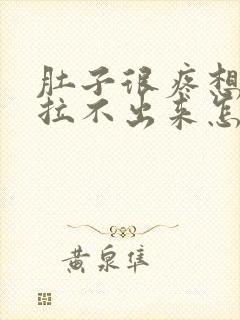 肚子很疼想
拉不出来怎
黄泉隼